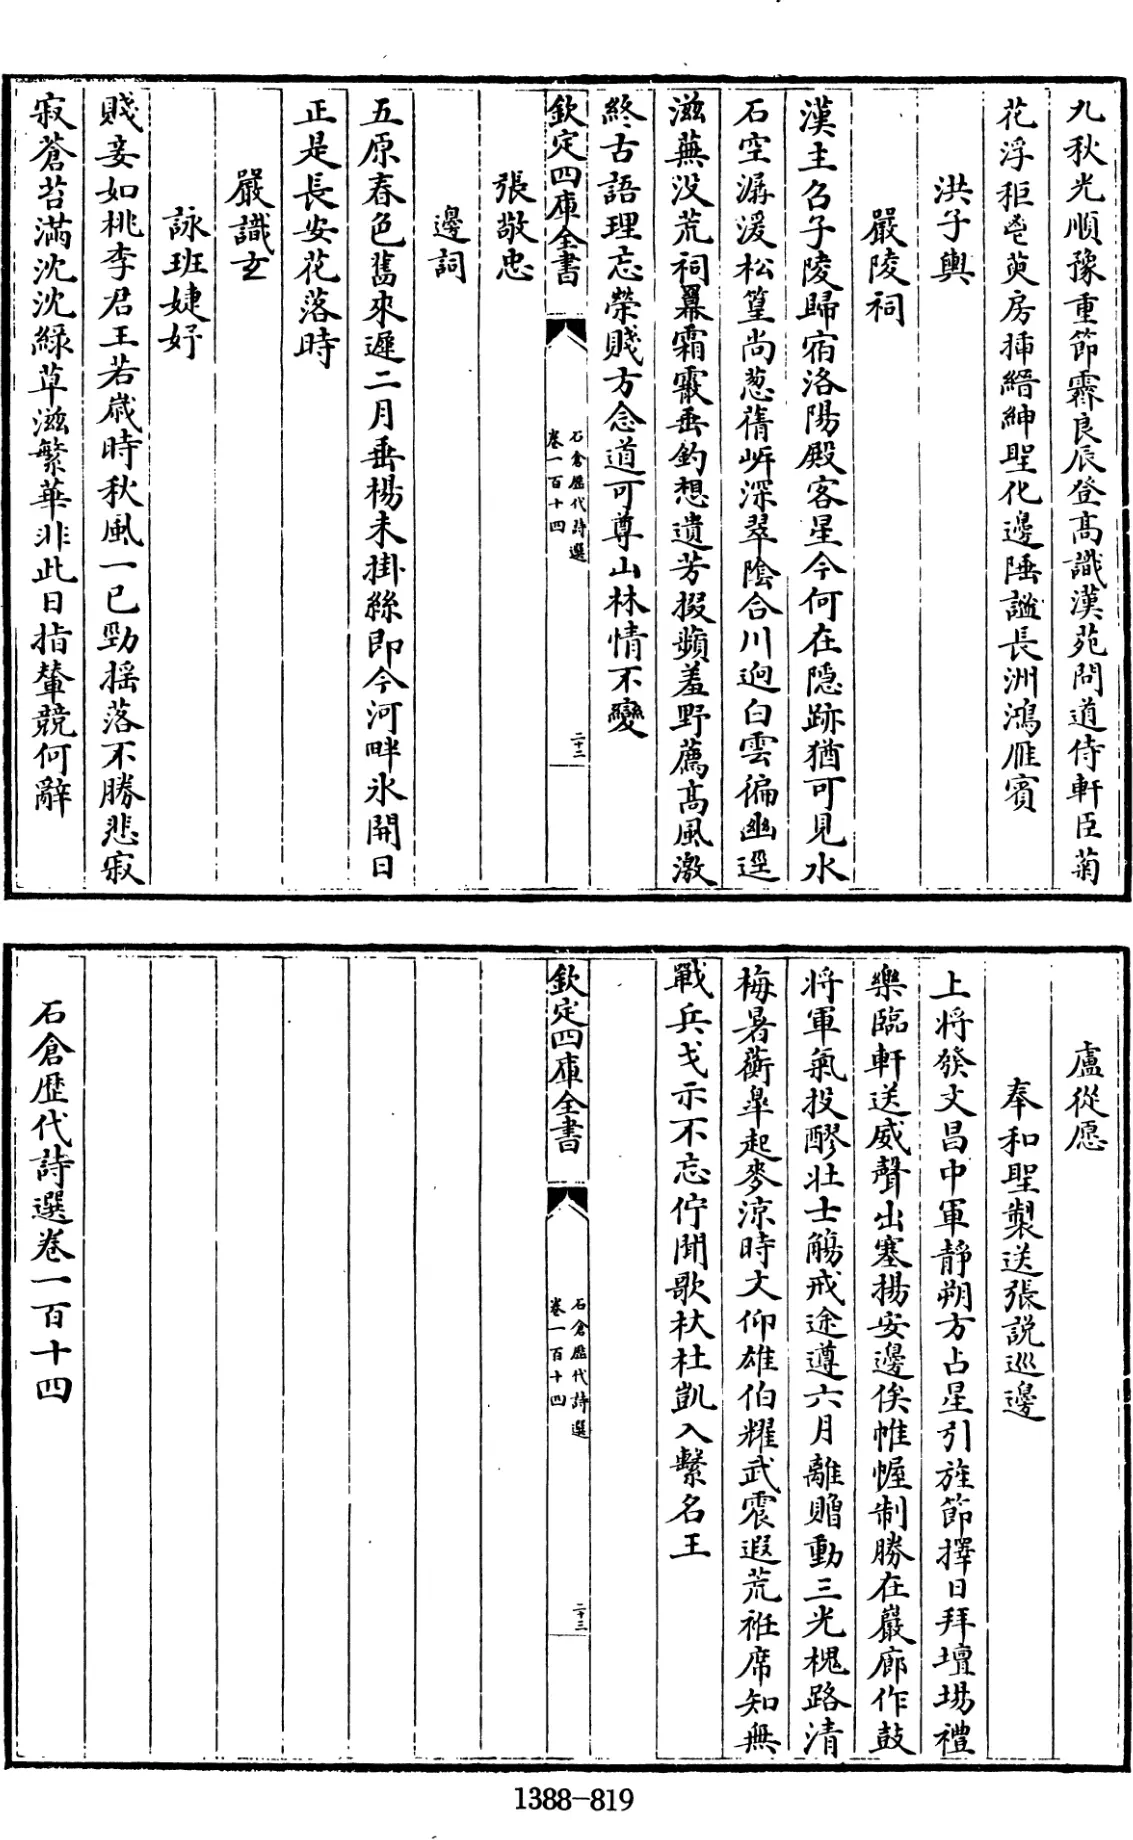 九秋光順豫重節霽良辰登高識漢苑問道侍軒臣菊
花浮秬鬯萸房揷縉紳聖化邊陲謐長洲鴻雁賓
洪子輿
嚴陵祠
漢主召子陵歸宿洛陽殿客星今何在隠跡猶可見水
石空潺湲松篁尚葱蒨岍深翠陰合川迥白雲徧幽逕
滋蕪没荒祠羃霜霰垂釣想遺芳掇蘋羞野薦髙風激
終古語理忘榮賤方念道可尊山林情不變
欽定四庫全書
石倉歴代詩選
卷一百十四
二十二
張敬忠
邊詞
五原春色舊來遲二月垂楊未掛絲即今河畔氷開日
正是長安花落時
嚴識玄
詠班婕妤
賤妾如桃李君王若歳時秋風一已勁揺落不勝悲寂
寂蒼苔滿沈沈緑草滋繁華非此日指輦競何辭
盧從愿
奉和聖製送張説巡邊
上將發文昌中軍靜朔方占星引旌節擇日拜壇塲禮
樂臨軒送威聲出塞揚安邊俟帷幄制勝在巖廊作鼓
將軍氣投醪壯士觴戒途遵六月離贈動三光槐路清
梅暑蘅臯起麥涼時文仰雄伯耀武震遐荒袵席知無
戰兵戈示不忘佇聞歌杕杜凱入繫名王
欽定四庫全書
石倉歴代詩選
卷一百十四
二十三
石倉歴代詩選卷一百十四
1388-819